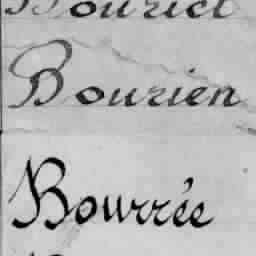 Bourien
Bourrée